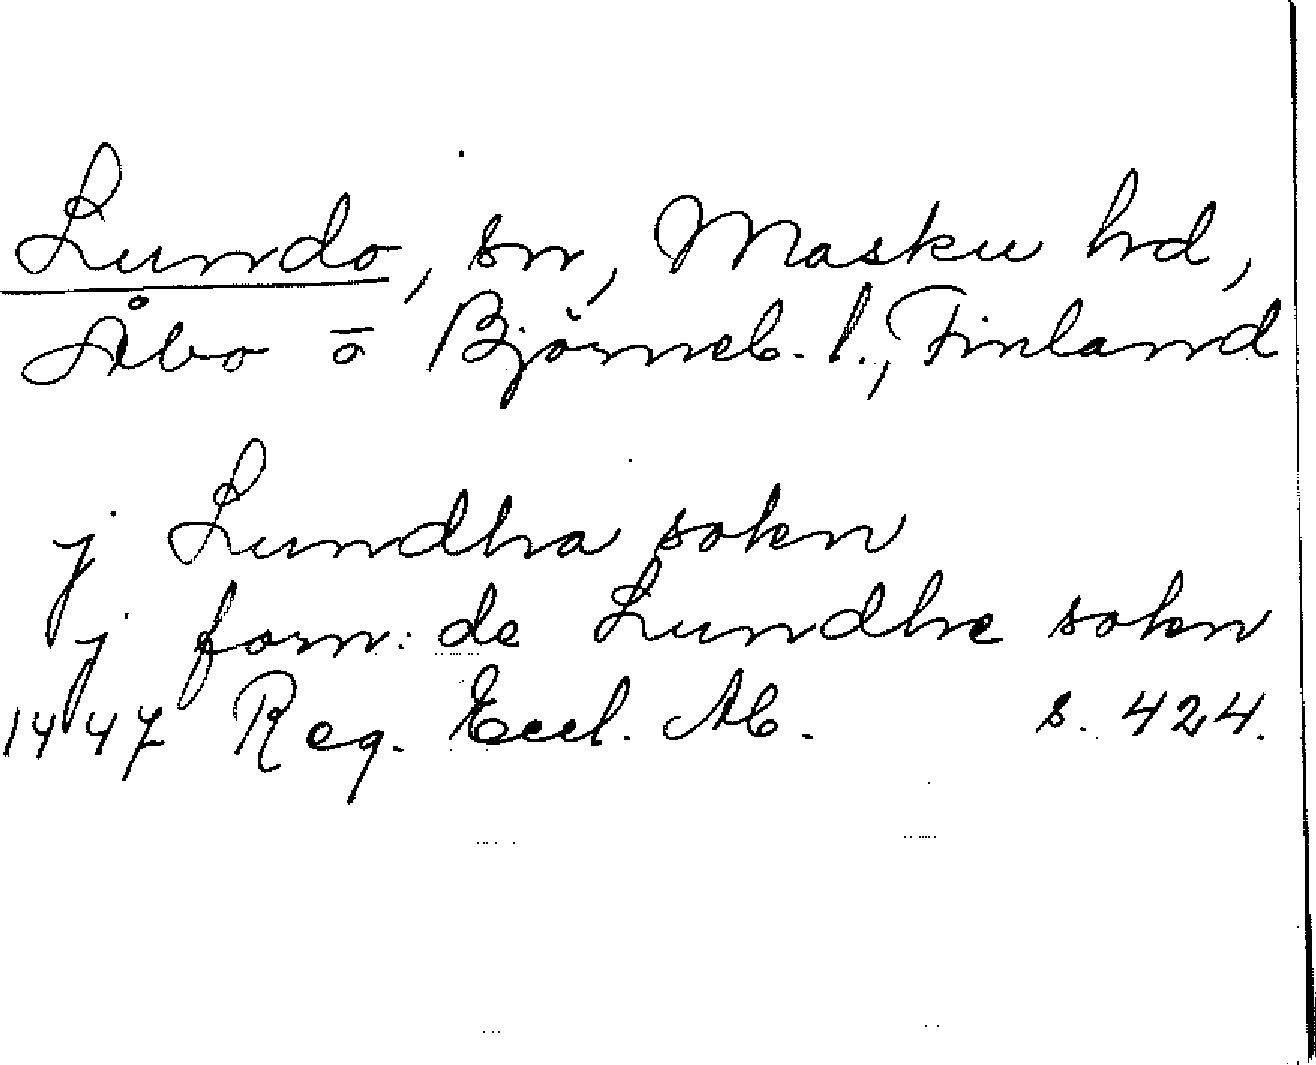 Lundo, sn, Masku hd,
Åbo o Björneb. l., Finland
j Lundha sokn
j forn: de Lundhe sokn
1447 Reg. Eccl. Ab. s. 424.